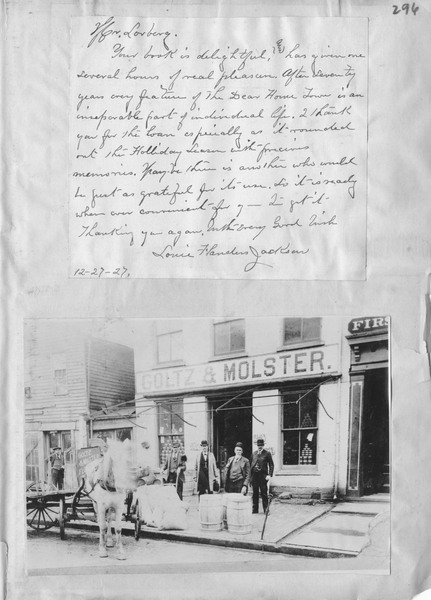 296
Mr. Loxberg.
Your book is delightful, & has given me
several hours of real pleasure. After seventy
years every feature of The Dear Home Town is an
inseparable part of individual life. I thank
you for the loan especially as it rounded
out the Holliday Season with precious
memories. Maybe there is another who would
be just as grateful for its use. So it is ready
when ever convenient for you to get it.
Thanking you again, with every Good Wish
Louie Flanders Jackson
12-27-27.
GOLTZ & MOLSTER.
FIRS